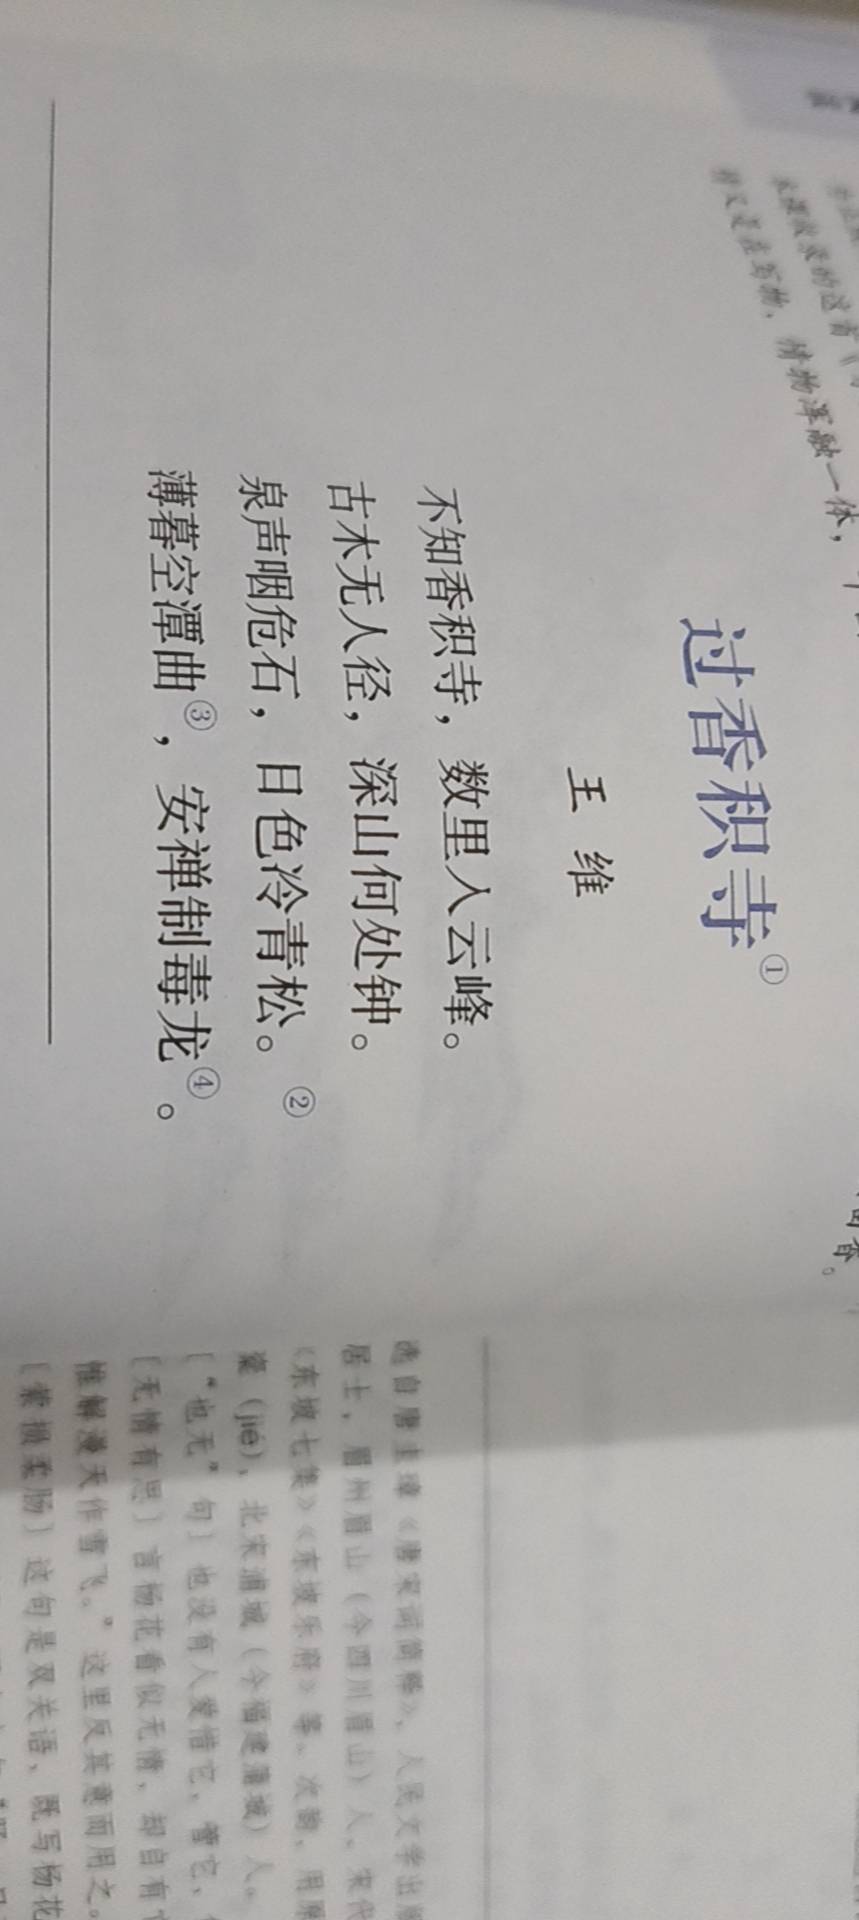 情物浑融一体，
过香积寺①
王 维
不知香积寺，数里入云峰。
古木无人径，深山何处钟。
泉声咽危石，日色冷青松。②
薄暮空潭曲③，安禅制毒龙④。
选自唐圭璋《唐宋词简释》，人民文学出版
居士，眉州眉山（今四川眉山）人，宋代
《东坡七集》《东坡乐府》等。次韵，用原
楶（jié），北宋浦城（今福建蒲城）人。
［“也无”句］也没有人爱惜它，管它，
［无情有思］言杨花看似无情，却自有
惟解漫天作雪飞。”这里反其意而用之。
［萦损柔肠］这句是双关语，既写杨花